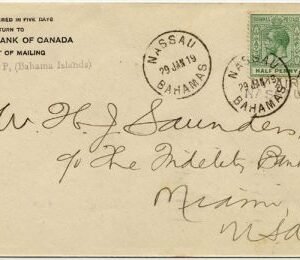 ERED IN FIVE DAYS
TURN TO
BANK OF CANADA
T OF MAILING
P, (Bahama Islands)
NASSAU
29 JAN 19
BAHAMAS
NASSAU
29 JAN 19
BAHAMAS
HALF PENNY
H. J. Saunders,
c/o The Fidelity Bank
Miami,
USA